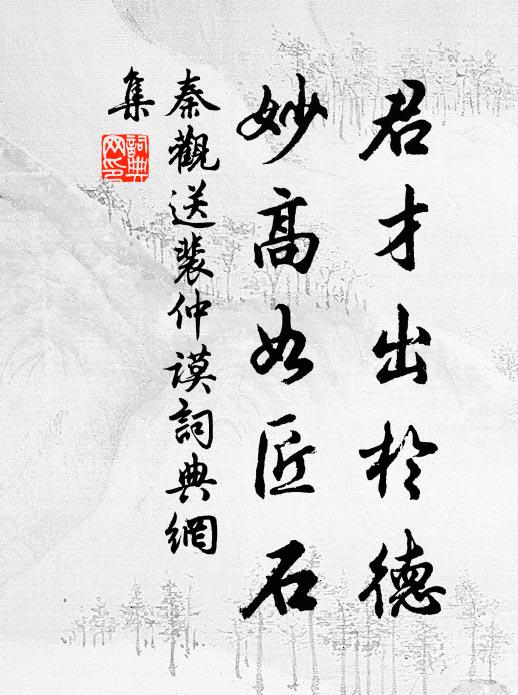 君才出於德
妙高如匠石
秦觀送裴仲謨詞典網
集
詞典
网印